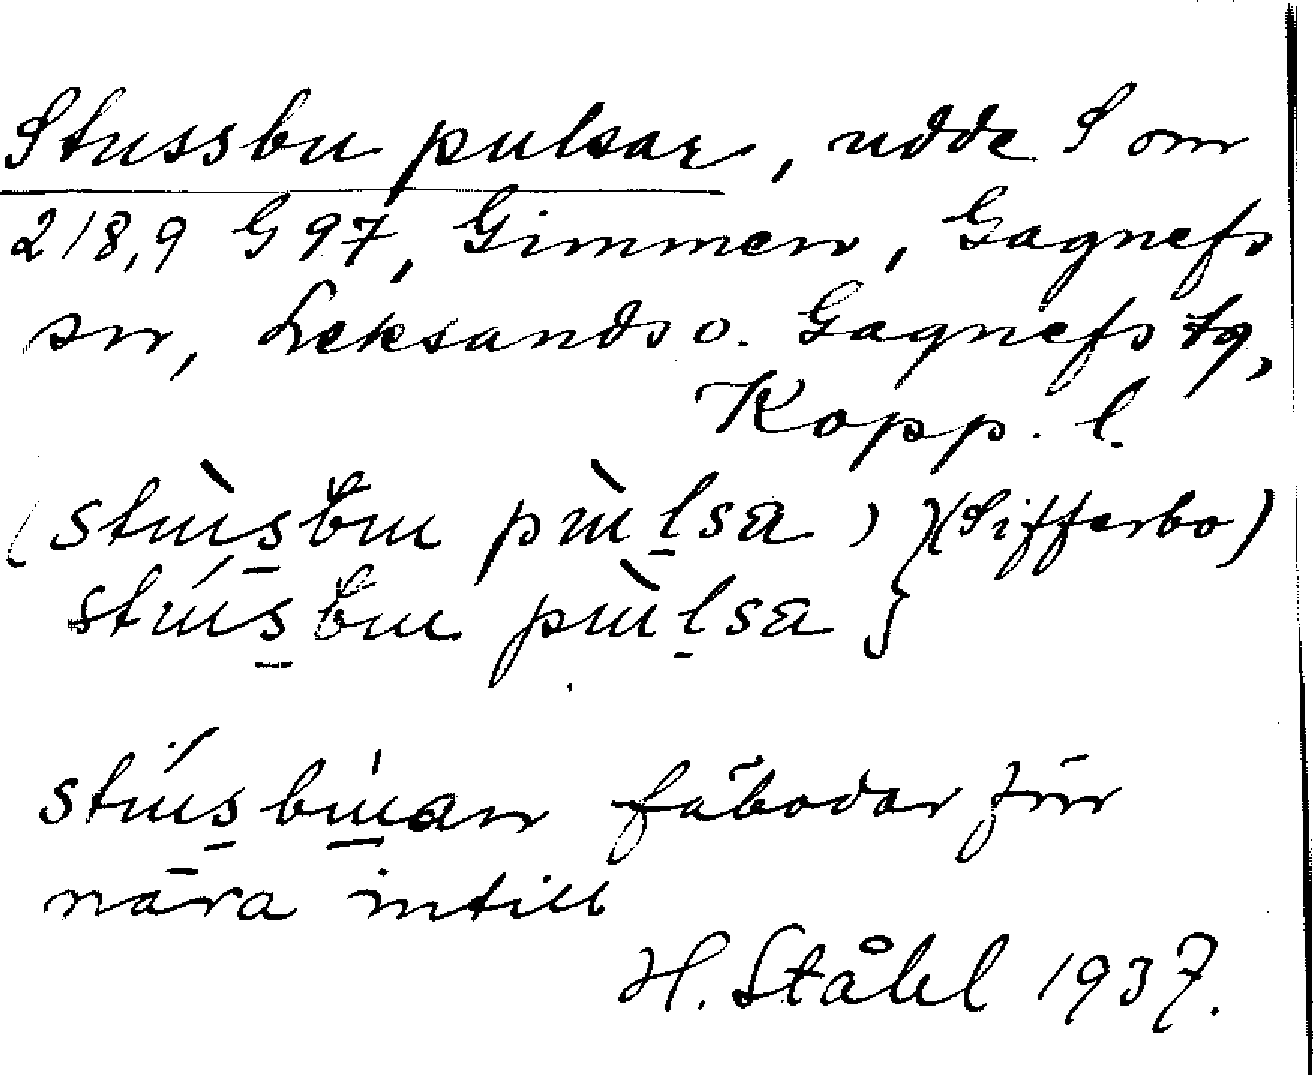 Stussbu pulsar, udde S om
218,9 G 97, Gimmen, Gagnefs
sn, Leksands o. Gagnefs tg,
Kopp. l.
(stùsbu pùlsa) } (Sifferbo)
stúsbu pùlsa }
stúsbuan fäbodar förr
nära intill
H. Ståhl 1937.